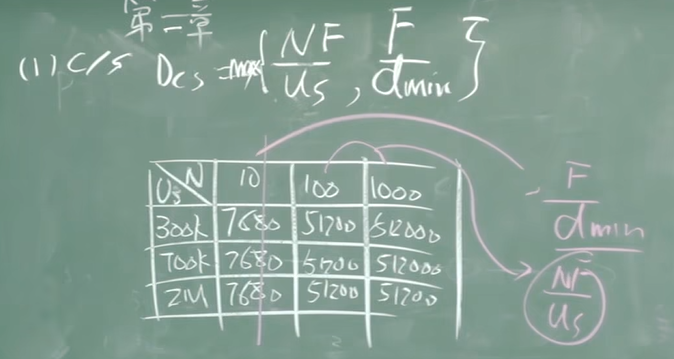 第二章
(1) C/S Dcs = max{NF/Us, F/dmin}
Us N 10 100 1000
300k 7680 51200 512000
700k 7680 51200 512000
2M 7680 51200 51200
F/dmin
NF/Us